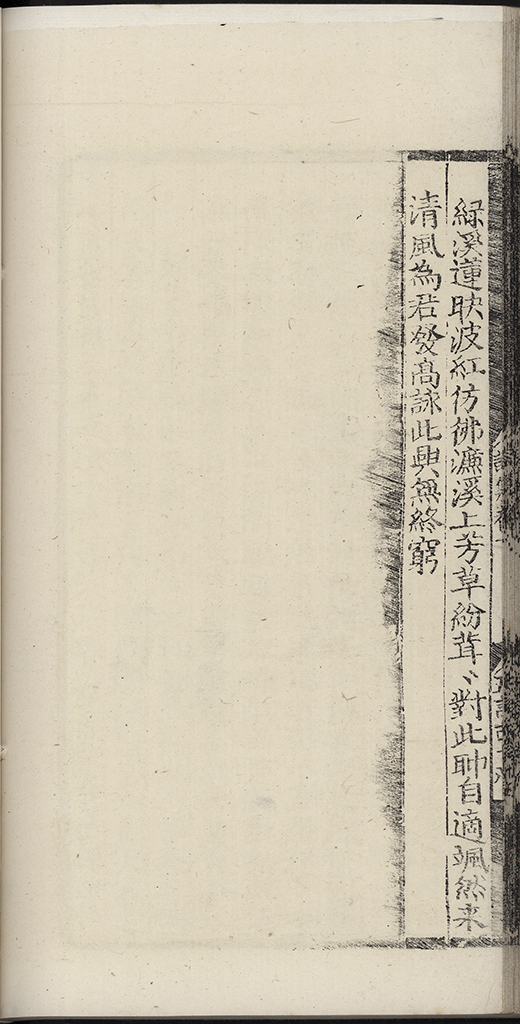 緑溪蓮映波紅仿彿濂溪上芳草紛茸〻對此聊自適颯然来
清風為君發高詠此興無終窮